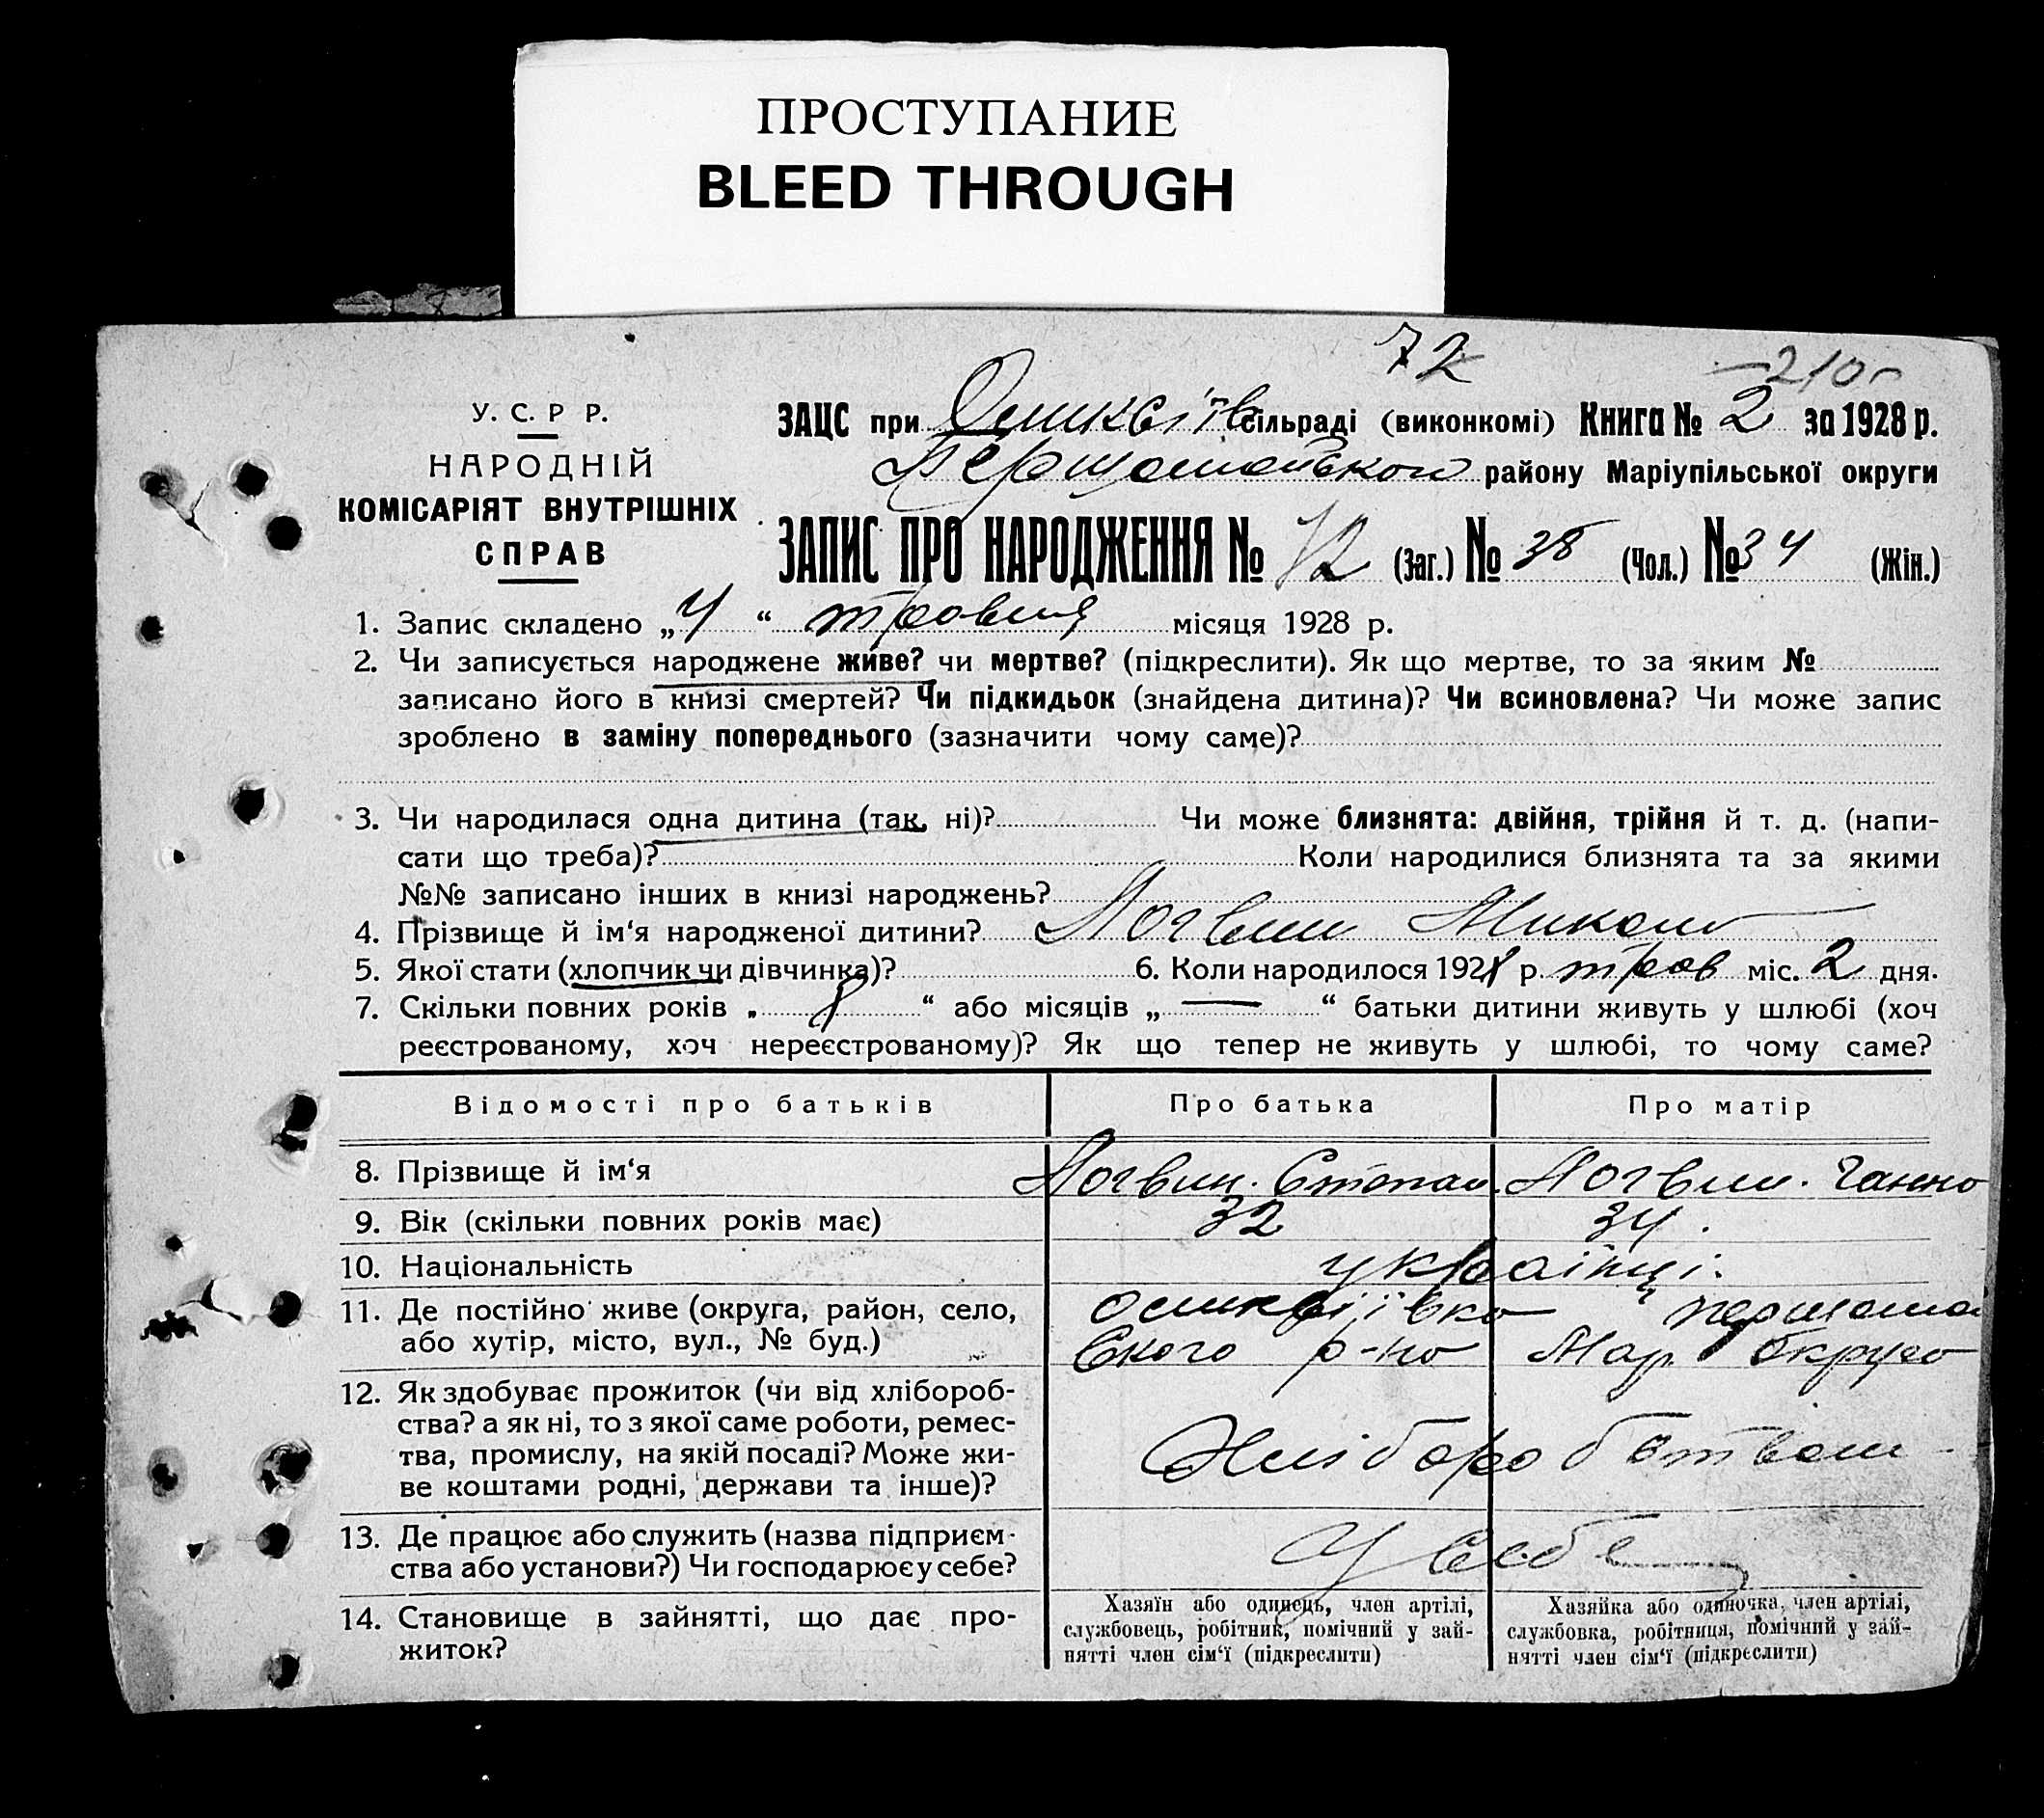 ПРОСТУПАНИЕ
BLEED THROUGH
72
210
У. С. Р Р.
НАРОДНІЙ
КОМІСАРІЯТ ВНУТРІШНІХ
СПРАВ
ЗАЦС при сільраді (виконкомі) Книга № 2 за 1928 р.
Першомайського району Маріупільської округи
ЗАПИС ПРО НАРОДЖЕННЯ № 72 (Заг.) № 38 (Чол.) № 34 (Жін.)
1. Запис складено „ 4 “ травня місяця 1928 р.
2. Чи записується народжене живе? чи мертве? (підкреслити). Як що мертве, то за яким №
записано його в книзі смертей? Чи підкидьок (знайдена дитина)? Чи всиновлена? Чи може запис
зроблено в заміну попереднього (зазначити чому саме)?
3. Чи народилася одна дитина (так, ні)? Чи може близнята: двійня, трійня й т. д. (напи-
сати що треба)? Коли народилися близнята та за якими
№№ записано інших в книзі народжень?
4. Прізвище й ім‘я народженої дитини? Логвин Микола
5. Якої стати (хлопчик чи дівчинка)? 6. Коли народилося 1928 р. трав міс. 2 дня.
7. Скільки повних років „ 8 “ або місяців „ — “ батьки дитини живуть у шлюбі (хоч
реєстрованому, хоч нереєстрованому)? Як що тепер не живуть у шлюбі, то чому саме?
Відомості про батьків Про батька Про матір
8. Прізвище й ім‘я Логвин. Степан. Логвин. Ганна
9. Вік (скільки повних років має) 32 34.
10. Національність українці.
11. Де постійно живе (округа, район, село, першома
або хутір, місто, вул., № буд.) ського р-на Мар. округа
12. Як здобуває прожиток (чи від хлібороб-
ства? а як ні, то з якої саме роботи, ремес-
тва, промислу, на якій посаді? Може жи- Хліборобством
ве коштами родні, держави та інше)?
13. Де працює або служить (назва підприєм- У себе
ства або установи?) Чи господарює у себе?
14. Становище в зайнятті, що дає про-
житок?
Хазяїн або одинець, член артілі,
службовець, робітник, помічний у зай-
нятті член сім‘ї (підкреслити)
Хазяйка або одиночка, член артілі,
службовка, робітниця, помічний у зай-
нятті член сім‘ї (підкреслити)